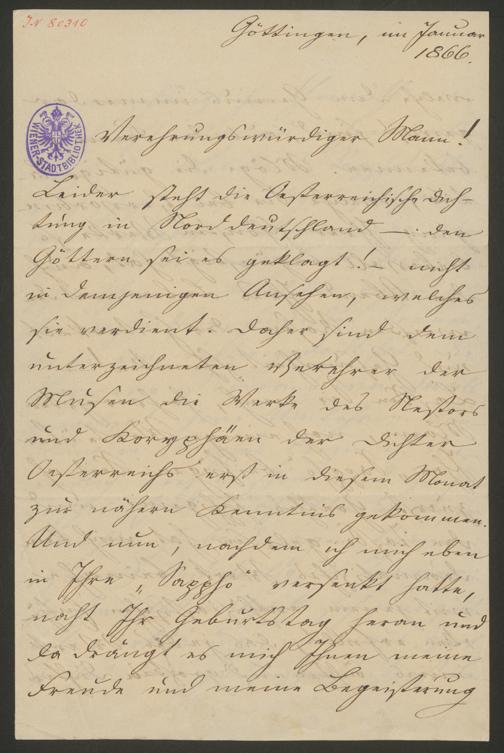 J.N. 80310
Göttingen, im Januar
1866.
WIENER-STADTBIBLIOTHEK
Verehrungswürdiger Mann!
Leider steht die Oesterreichische Dich-
tung in Norddeutschland — den
Göttern sei es geklagt! — nicht
in demjenigen Ansehen, welches
sie verdient. Daher sind dem
unterzeichneten Verehrer der
Musen die Werke des Nestors
und Koryphäen der Dichter
Oesterreichs erst in diesem Monat
zur nähern Kenntnis gekommen.
Und nun, nachdem ich mich eben
in Ihre „Sappho" versenkt hatte,
naht Ihr Geburtstag heran und
da drängt es mich Ihnen meine
Freude und meine Begeisterung